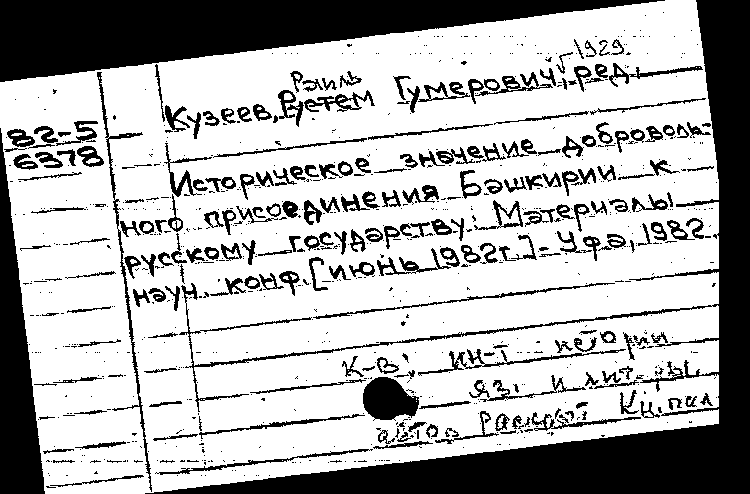 1929
Раиль
Кузеев, Рустем Гумерович, ред.
82-5
6378
Историческое значение доброволь-
ного присоединения Башкирии к
русскому государству: Материалы
науч. конф. [июнь 1982г.]- Уфа, 1982.
К-В: ин-т истории
яз. и лит-ры.
автор раскрыт Кн. пал